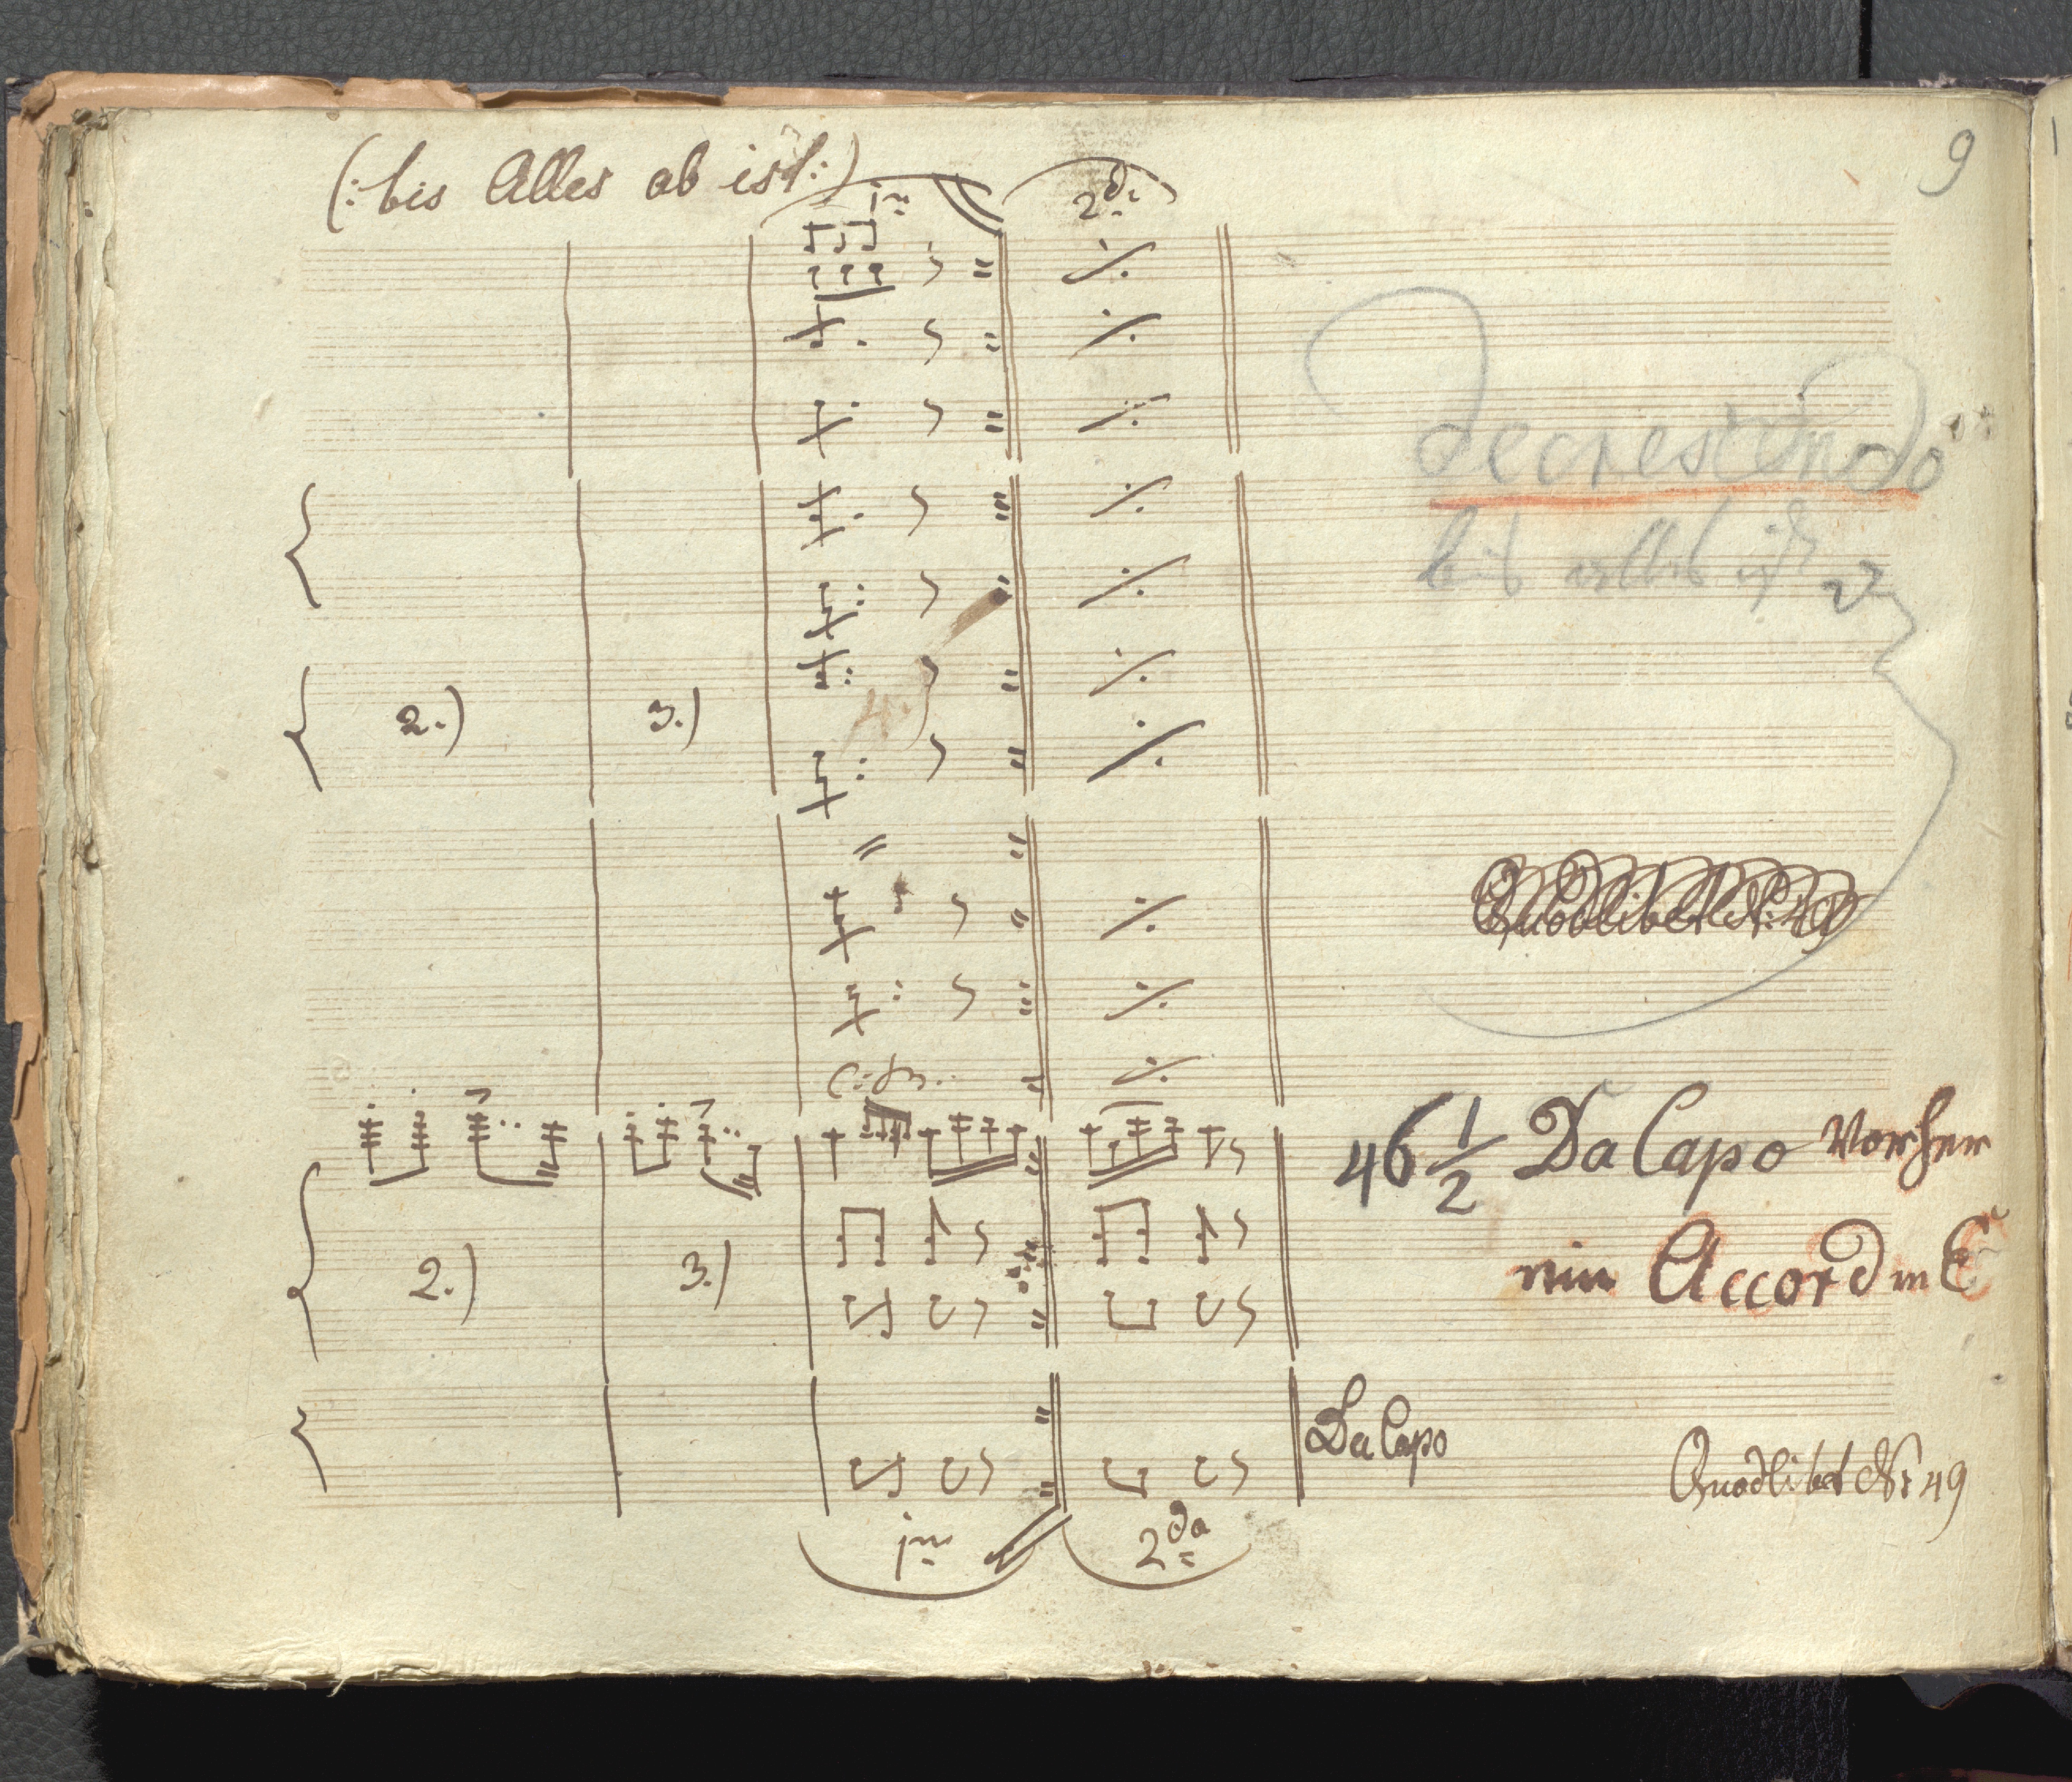 9
(: bis Alles ab ist :)
1ma 2da
decrescendo
bis alles ist
2.) 3.)
4.
Quodlibet Nr: 49
46 1/2 Da Capo Vorher
ein Accord in C
2.) 3.)
Da Capo
Quodlibet Nr 49
1ma 2da